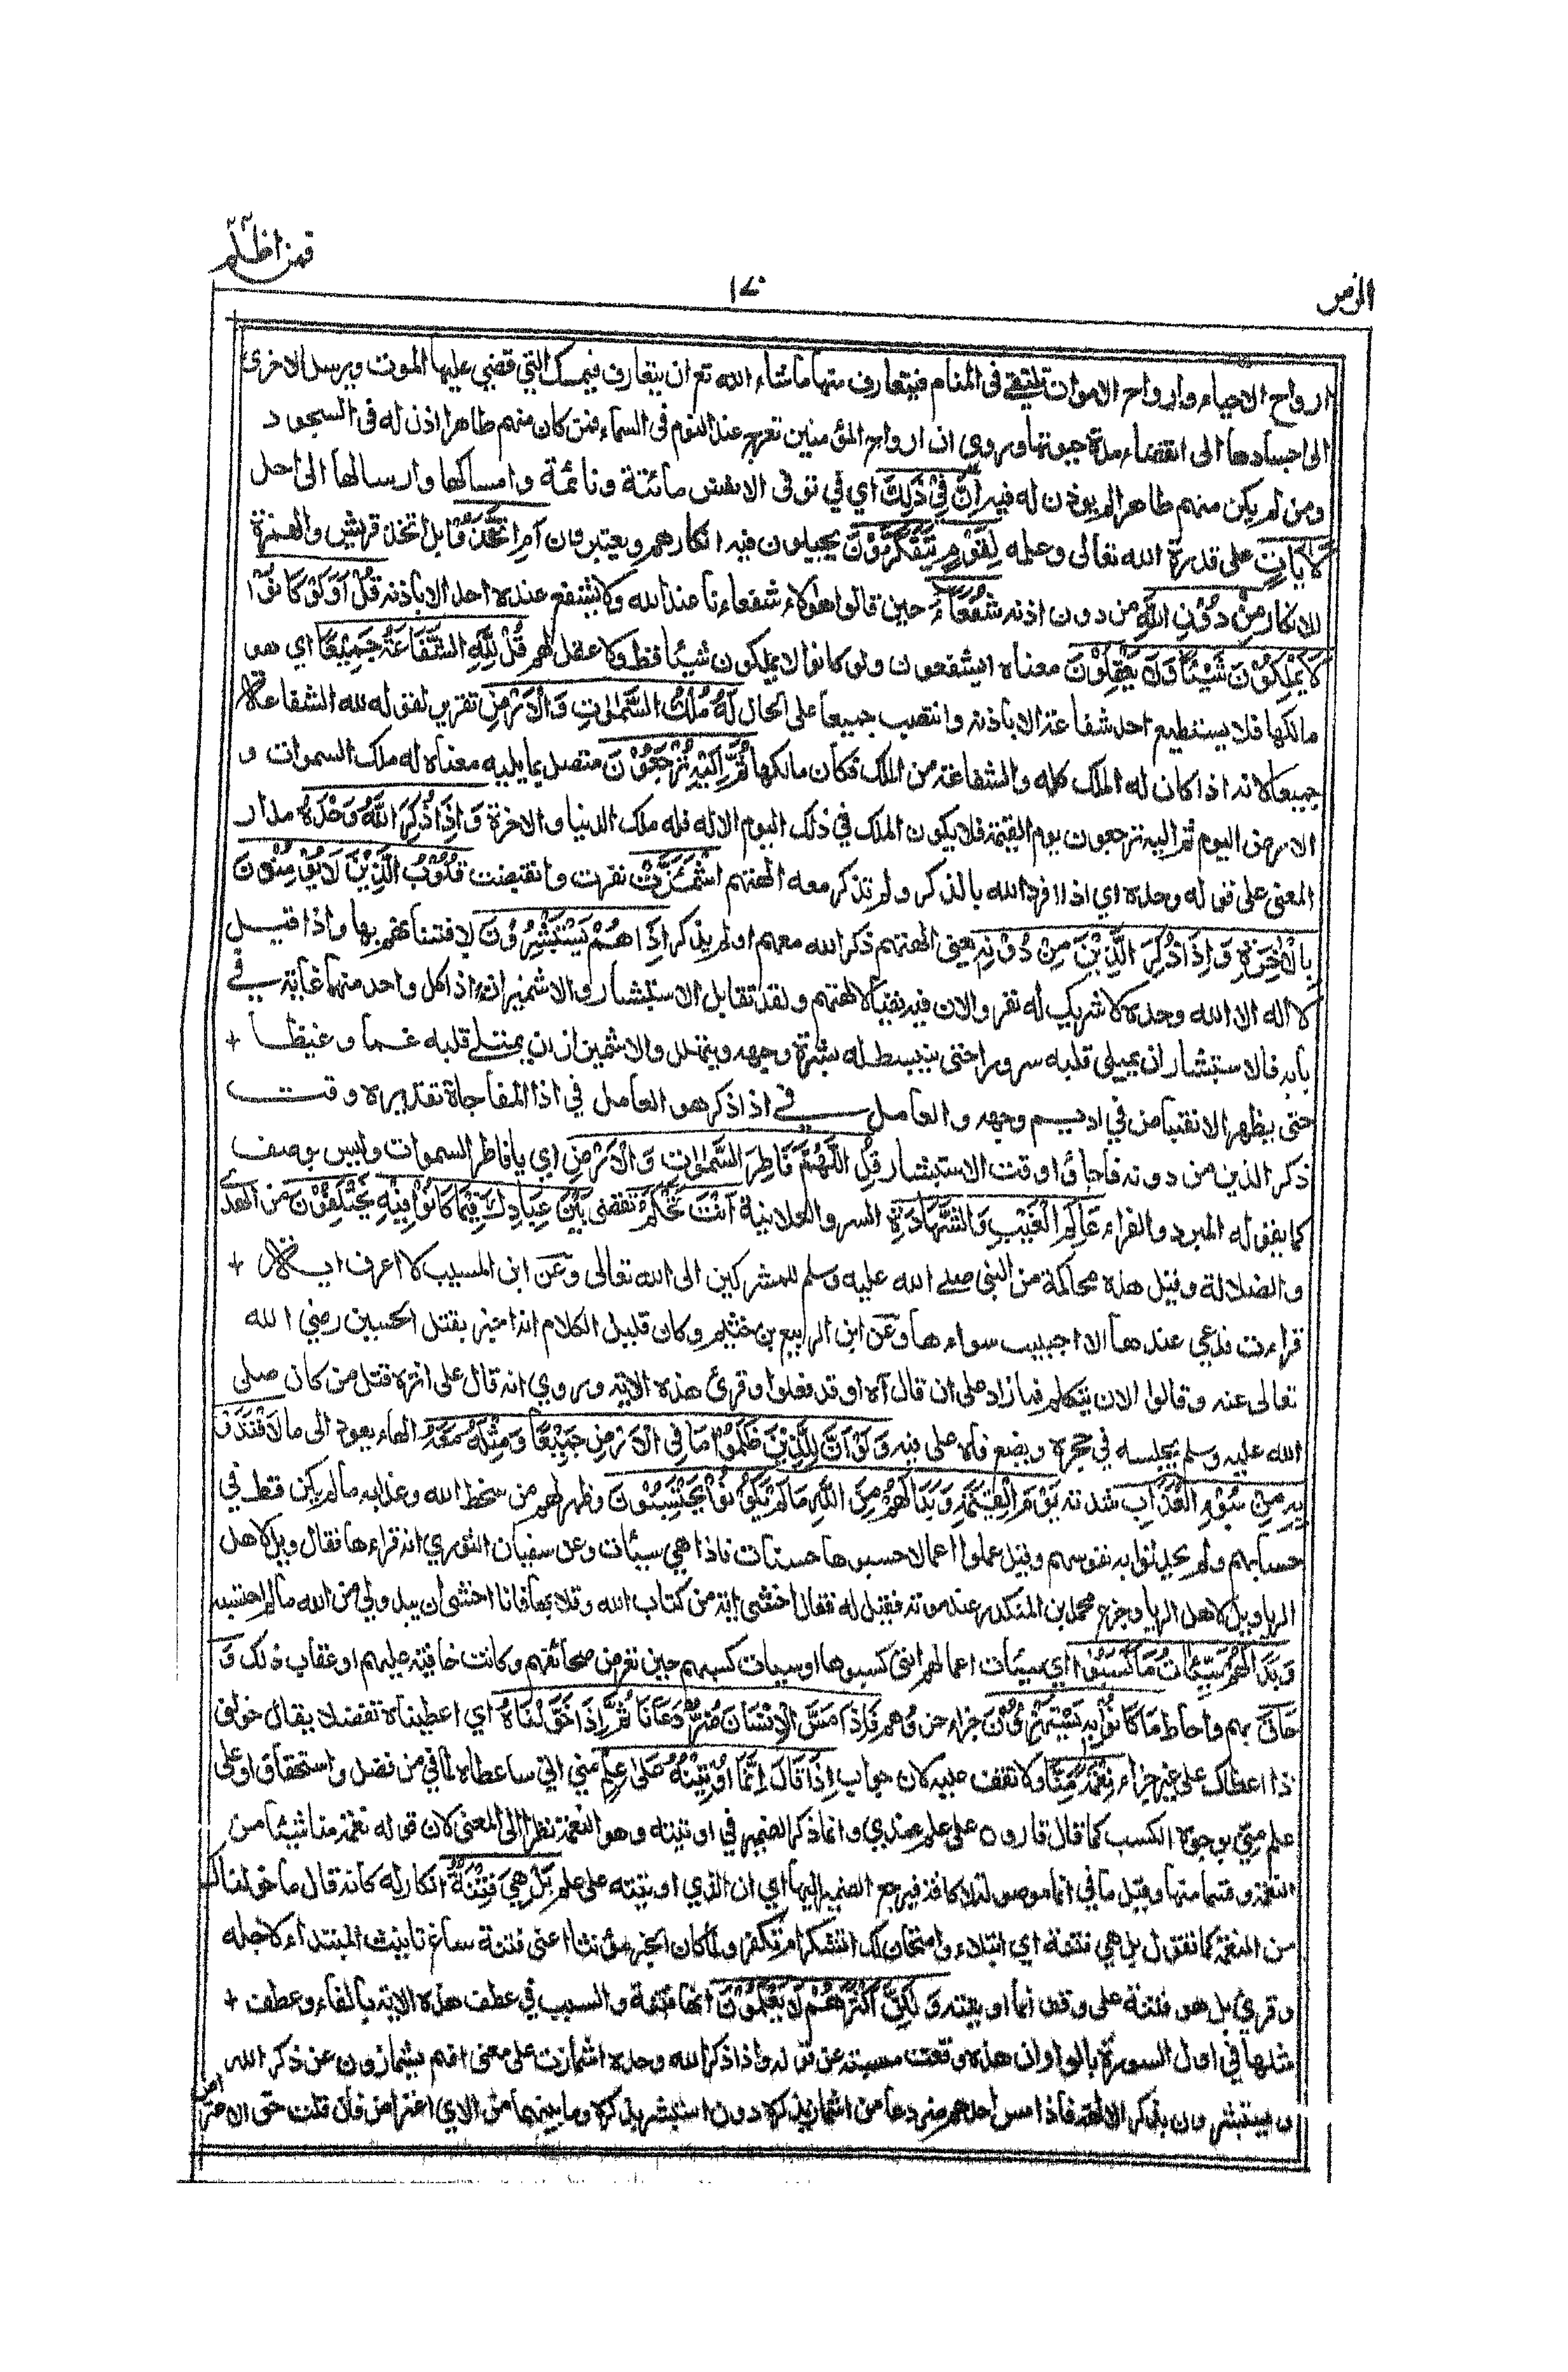 فمن اظلم
١٧٠
الزمر
ارواح الاحياء وارواح الاموات تلتقي فى المنام فيتعارف منها ما شاء الله تع ان يتعارف فيمسك التي قضي عليها الموت ويرسل الاخرى
الى اجسادها الى انقضاء مدة حيوتها وروي ان ارواح المؤمنين تعرج عند النوم فى السماء فمن كان منهم طاهرا اذن له فى السجود
ومن لم يكن منهم طاهرا لم يوذن له فيه اِنَّ فِيْ ذٰلِكَ اي في توفى الانفس مائتة ونائمة وامساكها وارسالها الى اجل
لَاٰيَاتٍ على قدرة الله تعالى وعلمه لِقَوْمٍ يَتَفَكَّرُوْنَ يجيلون فيه افكارهم ويعتبرون اَمِ اتَّخَذُوْا بل اتخذ قريش والهمزة
للانكار مِنْ دُوْنِ اللهِ من دون اذنه شُفَعَاءَ حين قالوا هؤلاء شفعاءنا عند الله ولا يشفع عنده احد الا باذنه قُلْ اَوَلَوْ كَانُوْا
لَا يَمْلِكُوْنَ شَيْئًا وَّلَا يَعْقِلُوْنَ معناه ايشفعون ولو كانوا لا يملكون شيئا قط ولا عقل لهم قُلْ لِلّٰهِ الشَّفَاعَةُ جَمِيْعًا اي هو
مالكها فلا يستطيع احد شفاعة الا باذنه وانتصب جميعا على الحال لَهٗ مُلْكُ السَّمٰوٰتِ وَالْاَرْضِ تقرير لقوله لله الشفاعة
جميعا لانه اذا كان له الملك كله والشفاعة من الملك فكان مالكها ثُمَّ اِلَيْهِ تُرْجَعُوْنَ متصل بما يليه معناه له ملك السموات و
الارض اليوم ثم اليه ترجعون يوم القيمة فلا يكون الملك في ذلك اليوم الا له فله ملك الدنيا والاخرة وَاِذَا ذُكِرَ اللهُ وَحْدَهُ مدار
المعنى على قوله وحده اي اذا افرد الله بالذكر ولم تذكر معه الهتهم اشْمَئَزَّتْ نفرت وانقبضت قُلُوْبُ الَّذِيْنَ لَا يُؤْمِنُوْنَ
بِالْاٰخِرَةِ وَاِذَا ذُكِرَ الَّذِيْنَ مِنْ دُوْنِهٖ يعنى الهتهم ذكر الله معهم او لم يذكر اِذَا هُمْ يَسْتَبْشِرُوْنَ لافتتانهم بها واذا قيل
لا اله الا الله وحده لا شريك له نفروا لان فيه نفيا لالهتهم ولقد تقابل الاستبشار والاشمئزاز اذ كل واحد منهما غاية في
بابه فالاستبشار ان يمتلى قلبه سرورا حتى ينبسط له بشرة وجهه ويتهلل والاشمئزاز ان يمتلے قلبه غما وغيظا +
حتى يظهر الانقباض في اديم وجهه والعامل في اذا ذكر هو العامل في اذا المفاجاة تقديره وقت
ذكر الذين من دونه فاجاؤا وقت الاستبشار قُلِ اللّٰهُمَّ فَاطِرَ السَّمٰوٰتِ وَالْاَرْضِ اي يا فاطر السموات وليس بوصف
كما يقوله المبرد والفراء عَالِمَ الْغَيْبِ وَالشَّهَادَةِ السر والعلانية اَنْتَ تَحْكُمُ تقضى بَيْنَ عِبَادِكَ فِيْمَا كَانُوْا فِيْهِ يَخْتَلِفُوْنَ من الهدى
والضلالة وقيل هذه محاكمة من النبى صلى الله عليه وسلم للمشركين الى الله تعالى وعن ابن المسيب لا اعرف اية +
قراءت فدعي عندها الا اجيب سواءها وعن ابن الربيع بن خثيم وكان قليل الكلام انه اخبر بقتل الحسين رضي الله
تعالى عنه وقالوا الان يتكلم فما زاد على ان قال آه اوقد فعلوا وقرئ هذه الاية وروي انه قال على اثره قتل من كان صلى
الله عليه وسلم يجلسه في حجره ويضع فاه على فيه وَلَوْ اَنَّ لِلَّذِيْنَ ظَلَمُوْا مَا فِى الْاَرْضِ جَمِيْعًا وَّمِثْلَهٗ مَعَهٗ الهاء يعود الى ما لَافْتَدَوْا
بِهٖ مِنْ سُوْءِ الْعَذَابِ شدته يَوْمَ الْقِيٰمَةِ وَبَدَا لَهُمْ مِّنَ اللهِ مَا لَمْ يَكُوْنُوْا يَحْتَسِبُوْنَ وظهر لهم من سخط الله وعذابه ما لم يكن قط في
حسابهم ولم يحدثوا به نفوسهم وقيل عملوا اعمالا حسبوها حسنات فاذا هي سيئات وعن سفيان الثوري انه قراءها فقال ويل لاهل
الريا ويل لاهل الريا وجزع محمد بن المنكدر عند موته فقيل له فقال اخشى اية من كتاب الله وتلاها فانا اخشى ان يبدو لي من الله ما لم احتسبه
وَبَدَا لَهُمْ سَيِّئَاتُ مَا كَسَبُوْا اي سيئات اعمالهم التى كسبوها او سيئات كسبهم حين تعرض صحائفهم وكانت خافية عليهم او عقاب ذلك وَ
حَاقَ بهم واحاط مَا كَانُوْا بِهٖ يَسْتَهْزِءُوْنَ جزاء هزوهم فَاِذَا مَسَّ الْاِنْسَانَ ضُرٌّ دَعَانَا ثُمَّ اِذَا خَوَّلْنَاهُ اي اعطيناه تفضلا يقال خولنى
ذا اعطاك على غير جزاء نِعْمَةً مِّنَّا ولا تقف عليه لان جواب اِذَا قَالَ اِنَّمَا اُوْتِيْتُهٗ عَلٰى عِلْمٍ منى انى ساعطاه لما في من فضل واستحقاق او على
علم منى بوجوه الكسب كما قال قارون على علم عندي وانما ذكر الضمير في اوتيته وهو للنعمة نظرا الى المعنى لان قوله نعمة منا شيئا من
النعمة وقسما منها وقيل ما في انما موصولة لا كافة فيرجع الضمير اليها اي ان الذي اوتيته على علم بَلْ هِيَ فِتْنَةٌ انكار له كانه قال ما خولناك
من النعمة كما تقول بل هي فتنة اي ابتلاء وامتحان لك اتشكر ام تكفر ولما كان الخبر مؤنثا اعنى فتنة ساغ تانيث المبتداء لاجله
وقرئ بل هو فتنة على وفق انما اوتيته وَلٰكِنَّ اَكْثَرَهُمْ لَا يَعْلَمُوْنَ انها فتنة والسبب في عطف هذه الاية بالفاء وعطف +
مثلها في اول السورة بالواو ان هذه وقعت مسببة عن قوله واذا ذكر الله وحده اشمازت على معنى انهم يشمازون عن ذكر الله
ويستبشرون بذكر الالهة فاذا مس احدهم ضر دعا من اشماز بذكره دون استبشر بذكره وما بينهما من الاي اعتراض فان قلت حق الاعتراض